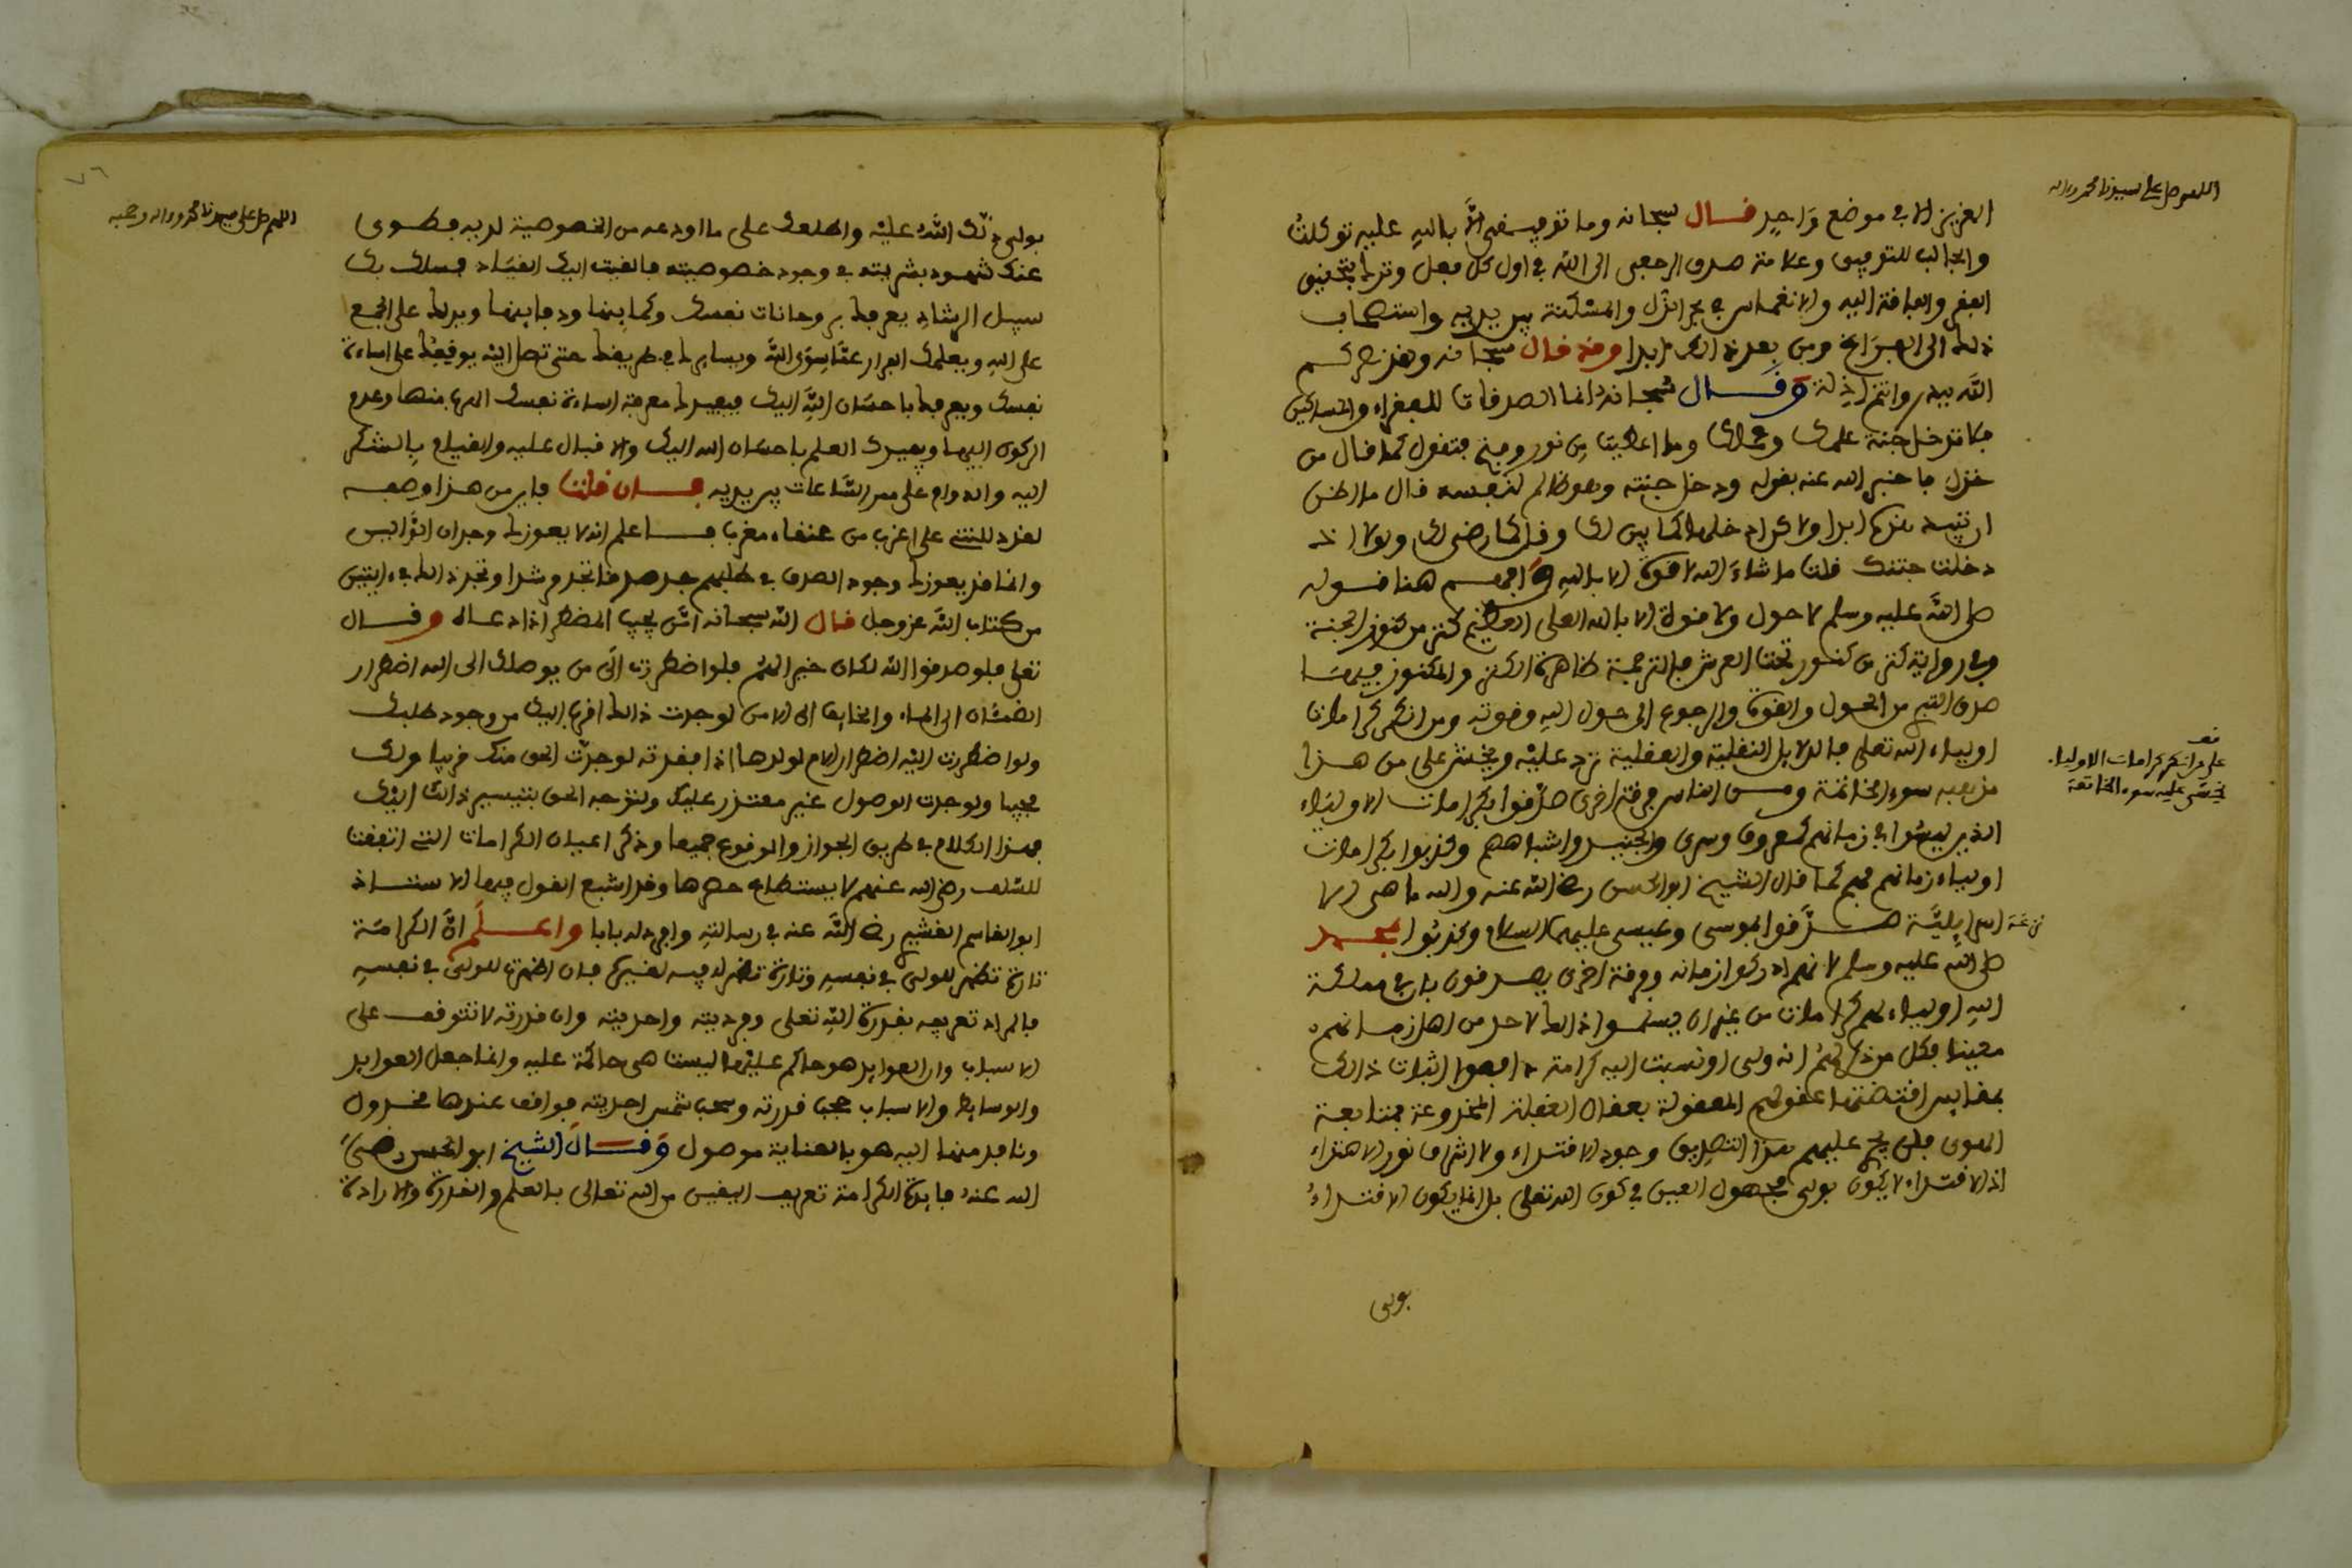 اللهم صل على سيدنا محمد وءاله
العزيز الا في موضع وَاحِدٍ قال سبحانه وما توفيقي إلَّا باللهِ عليه توكلتُ
والجالب للتوفيق وعلامته صدق الرجعى الى الله في اول كل فعل وتركه بتحقيق
الفقر والفاقة اليه والانغماس في بحر الذل والمسكنة بين يديه واستصحاب
ذلك الى الفراغ ومن بعد ذلك ابدا وقد قال سبحانه ولقد نصركم
الله ببدر وانتم اذلة وَقَال سبحانه انما الصدقات للفقراء والمساكين
فلا تدخل جنة علمك وعملك وما اعطيت من نور وفتح فتقول كما قال من
خذل فاخبر الله عنه بقوله ودخل جنته وهو ظالم لنفسه قال ما اظن
ان تبيد هذه ابدا ولاكن ادخلها كما بين لك وقل كما رضي لك ولولا اذ
دخلت جنتك قلت ما شاءَ الله لا قوة الا باللهِ وَافهم هنا قوله
صلى الله عليه وسلم لا حول ولا قوة الا بالله العلى العظيم كنز من كنوز الجنة
وفى رواية كنز من كنوز تحت العرش فالترجمة ظاهرة الكنز والمكنوز فيها
صدق التبري من الحول والقوة والرجوع الى حول الله وقوته ومن انكر كرامات
اولياء الله تعلى فالدلايل النقلية والعقلية ترد عليْه ويخشى على من هذا
قف
على من انكر كرامات الاولياء
يخشى عليه سوء الخاتمة
مذهبه سوء الخاتمة ومن الناس فرقة اخرى صدّقوا بكرامات الاولياء
الذين ليسُوا في زمانهم كمعروف وسرى والجنيد واشباههم وكذبوا بكرامات
اولياء زمانهم فهم كما قال الشيخ ابو الحسن رضي الله عنه والله ما هى الا
اسراييليَّة صدَّقوا بموسى وعيسى عليهما السلام وكذبُوا بمحمد
صلى الله عليه وسلم لانهم ادركوا زمانه وفرقة اخرى يصدقون بان في مملكة
اللهِ اولياء لهم كرامات من غير ان يسلموا ذلك لاحد من اهل زمانهم
معينا فكل من ذكر لهم انه ولى او نسبت اليه كرامة دافعوا اثبات ذالك
بمقاييس اقتضتها عقولهم المعقولة بعقال الغفلة المخدوعة بمتابعة
الهوى فلن يجدي عليهم هذا التصديق وجود الاقتداء ولا اشراق نور الاهتداء
اذ الاقتداء لا يكون بولى مجهول العين في كون الله تعلى بل انما يكون الاقتداءُ
بولى
٧٦
اللهم صل على سيدنا محمد وءاله وصحبه
بولى دلّك اللهُ عليْه واطلعك على ما اودعه من الخصوصية لديه فطوى
عنك شهود بشريته في وجود خصوصيته فالقيت اليه القيَاد فسلك بك
سبيل الرشاد يعرفك برعونات نفسك وكماينها ودفاينها ويدلك على الجمع
على اللهِ ويعلمك الفرار عمَّا سِوَى اللهِ ويسايرك في طريقك حتى تصل اليْه يوقفِك على اساءة
نفسك ويعرفك باحسَان اللهِ اليك فيفيدك معرفة اساءة نفسك الهرب منها وعدم
الركون اليها ويفيدك العلم باحسَان الله اليك والاقبال عليه والقيام بِالشكر
اليه والدوام على ممر السَّاعات بين يديه فان قلت فاين من هذا وصفه
لقد دللتني على اغرب من عنقاء مغرب فاعلم انه لا يعوزك وجدان الدَّالين
وانما قد يعوزك وجود الصدق في طلبهم جد صدقا تجد مرشدا وتجد ذالك في ءايتين
من كتاب اللهِ عز وجل قال الله سبحانه امّن يجيب المضطر اذا دعاه وقال
تعلى فلو صدقوا الله لكان خير الهم فلو اضطررت الَى من يوصلك الى الله اضطرار
الظمئان الى الماء والخايف الى الامن لوجدت ذالك اقرب اليك من وجود طلبك
ولو اضطررت اليْه اضطرار الام لولدها اذا فقدته لوجدتّ الحق منك قريبا ولك
مجيبا ولوجدت الوصول غير متعذر عليك ولتوجه الحق بتيسير ذالك اليْك
فهذا الكلام في طريق الجواز والوقوع جميعا وذكر اعيان الكرامات التى اتفقت
للسّلف رضي الله عنهم لا يستطاع حصرها وقد اشبع القول فيها الاستاذ
ابو القاسم القشيري رضي اللَّه عنه في رسالتهِ وافرد له بابا واعلَم انَّ الكرامَة
تارة تظهر للولي في نفسهِ وتارة تظهر فيه لغيره فان اظهرت للولي في نفسهِ
فالمراد تعريفه بقدرة اللهِ تعلى وفرديته واحديته وان قدرته لا تتوقف على
الاسباب وان العوايد هو حاكم عليْها ليست هى حاكمة عليه وانما جعل العوايد
والوسايط والاسباب حجب قدرته وسحب شمس احديته فواقف عندها مخذول
ونافد منها اليه هو بالعناية موصول وَقَالَ الشيخ ابو الحسن رضيَ
الله عنهُ فايدة الكرامة تعريف اليقين من الله تعالى بالعلم والقدرة والارادة